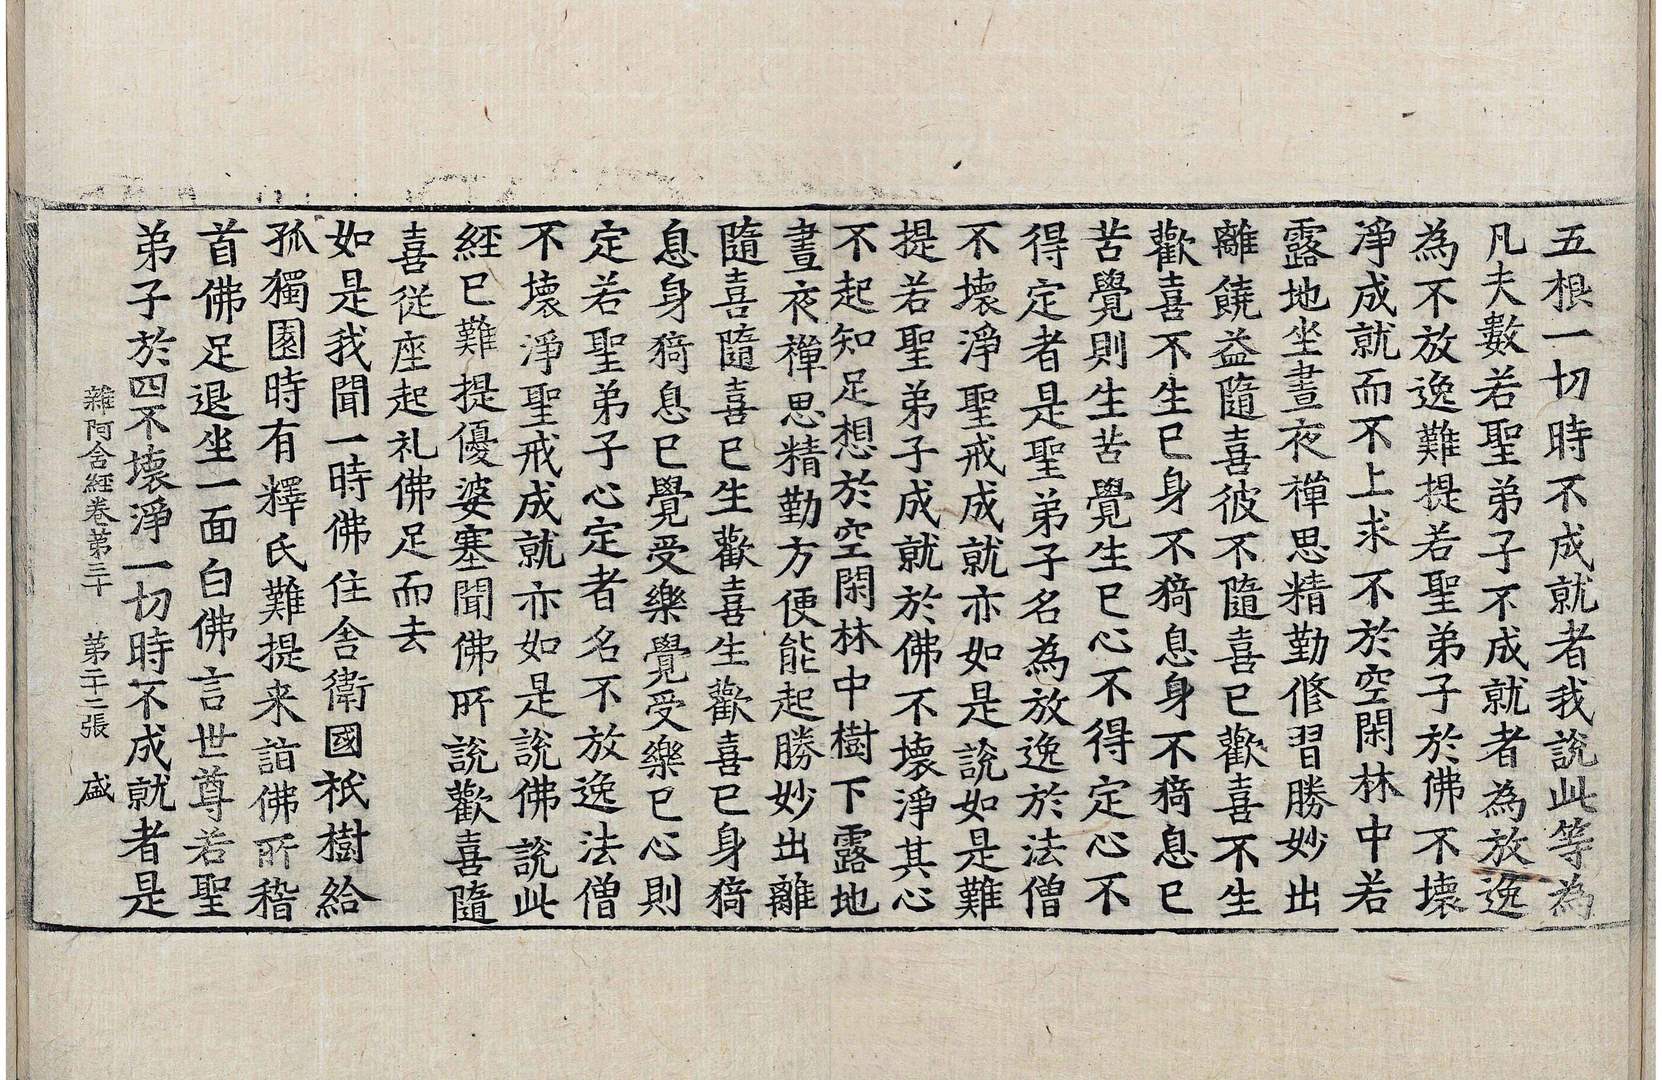 五根一切時不成就者我說此等為
凡夫數若聖弟子不成就者為放逸
為不放逸難提若聖弟子於佛不壞
淨成就而不上求不於空閑林中若
露地坐晝夜禪思精勤修習勝妙出
離饒益隨喜彼不隨喜已歡喜不生
歡喜不生已身不猗息身不猗息已
苦覺則生苦覺生已心不得定心不
得定者是聖弟子名為放逸於法僧
不壞淨聖戒成就亦如是說如是難
提若聖弟子成就於佛不壞淨其心
不起知足想於空閑林中樹下露地
晝夜禪思精勤方便能起勝妙出離
隨喜隨喜已生歡喜生歡喜已身猗
息身猗息已覺受樂覺受樂已心則
定若聖弟子心定者名不放逸法僧
不壞淨聖戒成就亦如是說佛說此
經已難提優婆塞聞佛所說歡喜隨
喜從座起礼佛足而去
如是我聞一時佛住舍衛國祇樹給
孤獨園時有釋氏難提来詣佛所稽
首佛足退坐一面白佛言世尊若聖
弟子於四不壞淨一切時不成就者是
雜阿含經卷第三十　第二十二張　盛